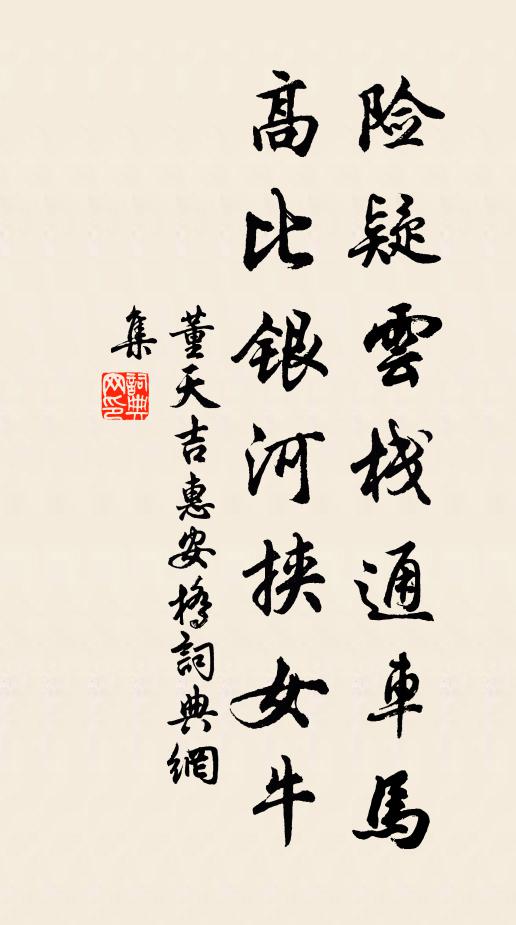 险疑雲栈通車馬
高比銀河挟女牛
董天吉惠安橋詞典網
集
詞典
网印